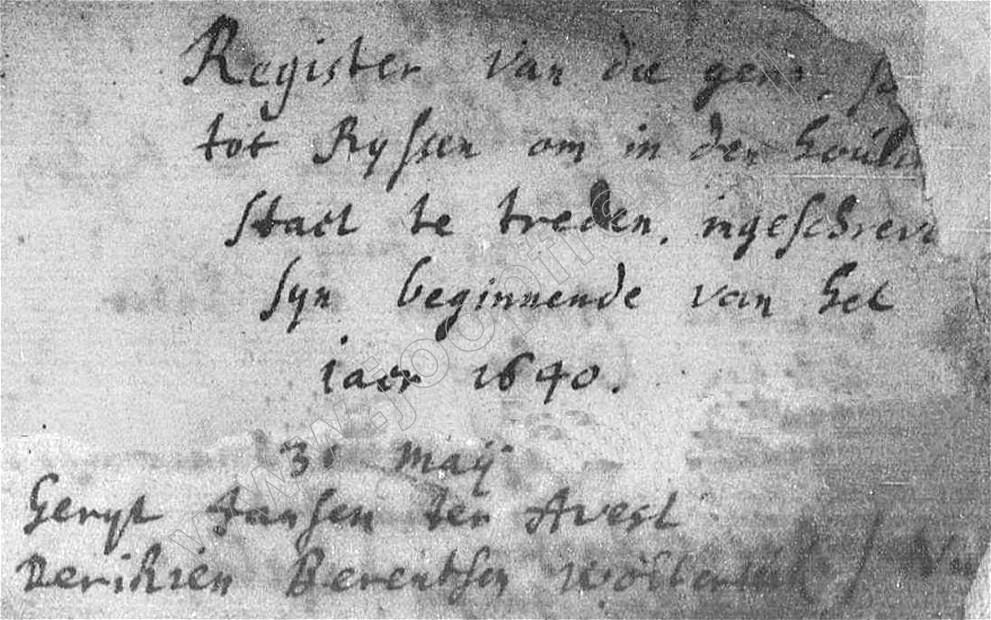 Register van die gene, so
tot Ryssen om in den houlicken
staet te treden, ingeschreven
syn beginnende van het
iaer 1640.
31 maij
Geryt Jansen ter Avest
Derikien Berentsen